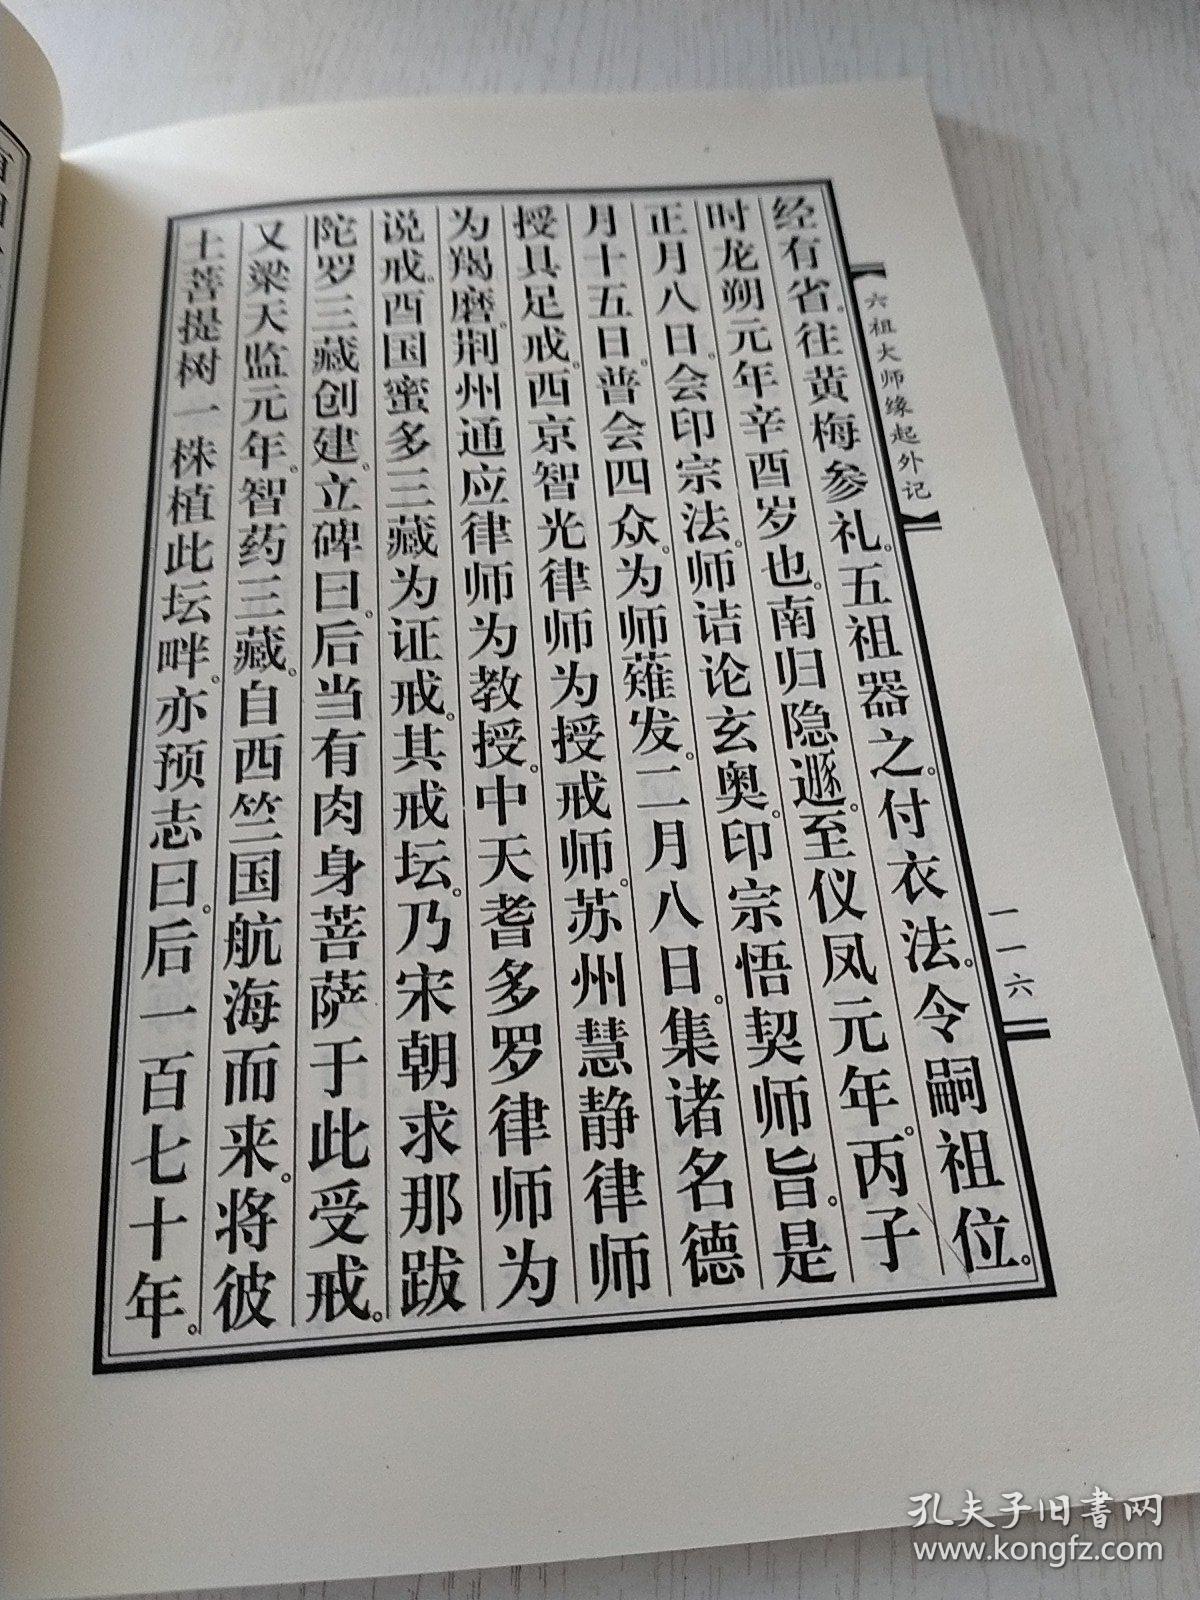 六祖大师缘起外记
一一六
经有省。往黄梅参礼。五祖器之。付衣法。令嗣祖位。
时龙朔元年辛酉岁也。南归隐遁。至仪凤元年。丙子
正月八日。会印宗法。师诘论玄奥。印宗悟契师旨。是
月十五日。普会四众。为师薙发。二月八日。集诸名德
授具足戒。西京智光律师为授戒师。苏州慧静律师
为羯磨。荆州通应律师为教授。中天耆多罗律师为
说戒。西国蜜多三藏为证戒。其戒坛。乃宋朝求那跋
陀罗三藏创建。立碑曰。后当有肉身菩萨于此受戒。
又梁天监元年。智药三藏。自西竺国航海而来。将彼
土菩提树一株植此坛畔。亦预志曰。后一百七十年。
孔夫子旧书网
www.kongfz.com